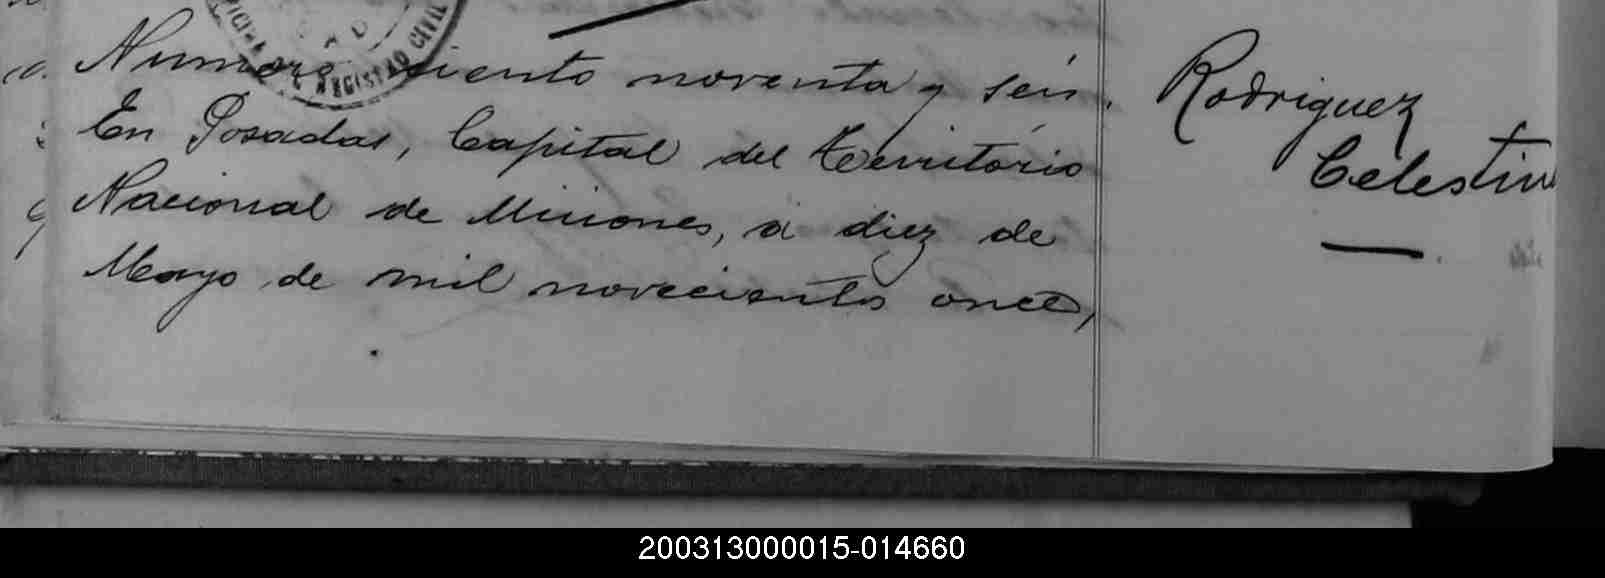 OFICINA DE REGISTRO CIVIL
Numero ciento noventa y seis.
En Posadas, Capital del Territorio
Nacional de Misiones, á diez de
Mayo de mil novecientos once,
Rodriguez
Celestin
200313000015-014660